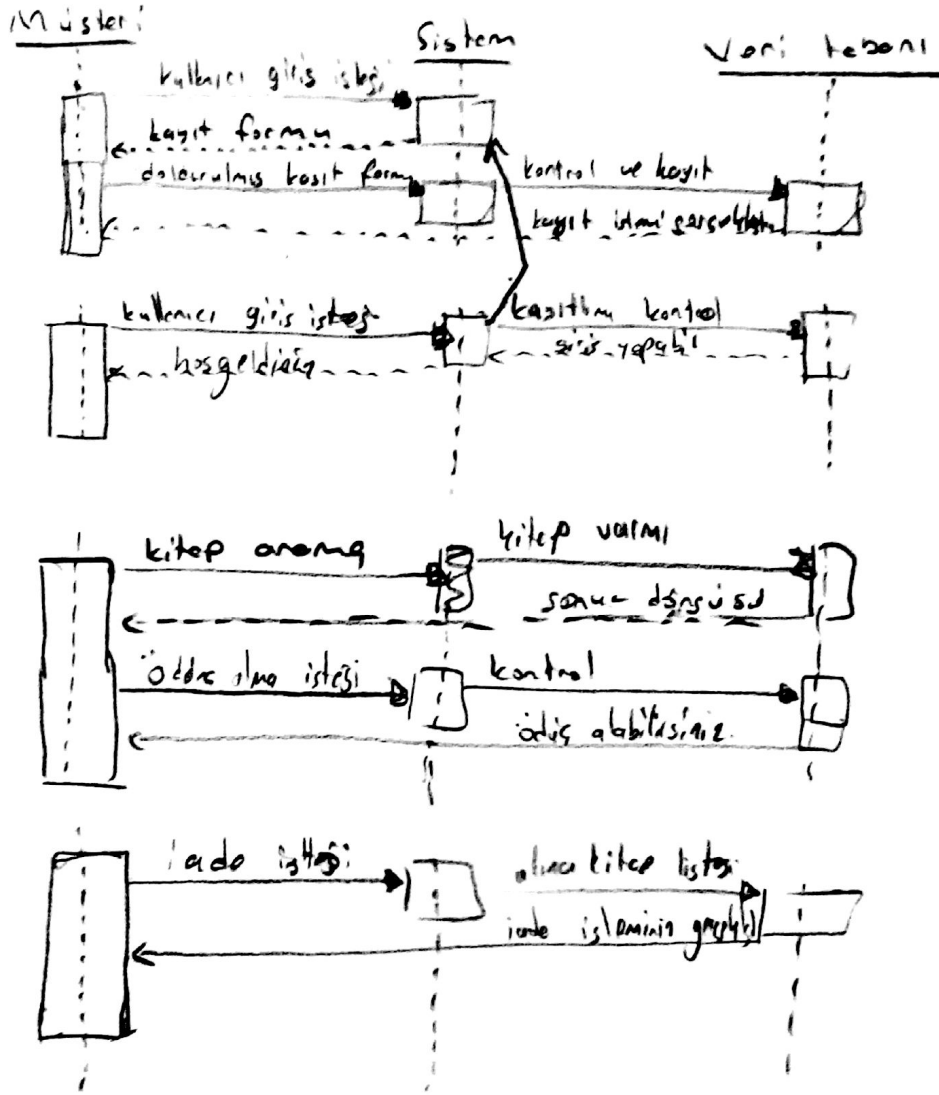 Müsteri
Sistem
Veri tabanı
kullanıcı giris isteği
kayıt formu
doldurulmıs kayıt formu
kontrol ve kayıt
kayıt
kullanıcı giris isteği
kayıtlımı kontrol
giris yapabil
hosgeldiniz
kitap arama
kitap varmı
sonuc döngüsü
Ödünc alma isteği
kontrol
ödüç alabilirsiniz
iade isteği
kitap listesi
iade isleminin